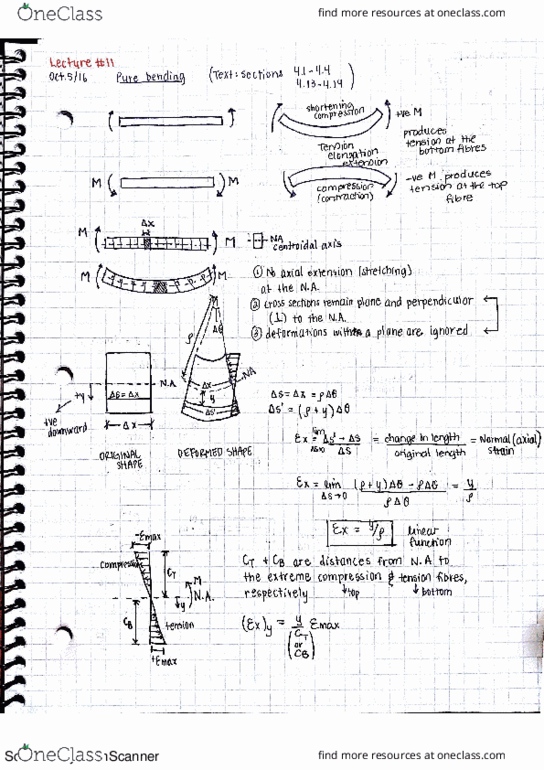 OneClass
find more resources at oneclass.com
Lecture #11
Oct.5/16 Pure bending (Text: sections 4.1-4.4
4.13-4.14)
shortening
compression
+ve M
produces
tension at the
bottom fibres
Tension
elongation
extension
M M
compression
(contraction)
-ve M produces
tension at the top
fibre
Δx
M M
NA
centroidal axis
M M
① No axial extension (stretching)
at the N.A.
② cross sections remain plane and perpendicular
(⊥) to the N.A.
③ deformations within a plane are ignored
ρ Δθ
NA
+y N.A.
Δs = Δx
+ve
downward
Δx
Δx
y
Δs'
ORIGINAL
SHAPE
DEFORMED SHAPE
Δs = Δx = ρΔθ
Δs' = (ρ + y) Δθ
Ɛx = lim Δs→0 Δs' - Δs / Δs = change in length / original length = Normal (axial) strain
Ɛx = lim Δs→0 (ρ + y) Δθ - ρΔθ / ρΔθ = y / ρ
Ɛx = y/ρ linear
function
-Ɛmax
compression
CT
M
y N.A.
CB
tension
+Ɛmax
CT + CB are distances from N.A to
the extreme compression & tension fibres,
respectively ↓top ↓bottom
(Ɛx)y = y / (CT or CB) Ɛmax
OneClass
Scanner
find more resources at oneclass.com